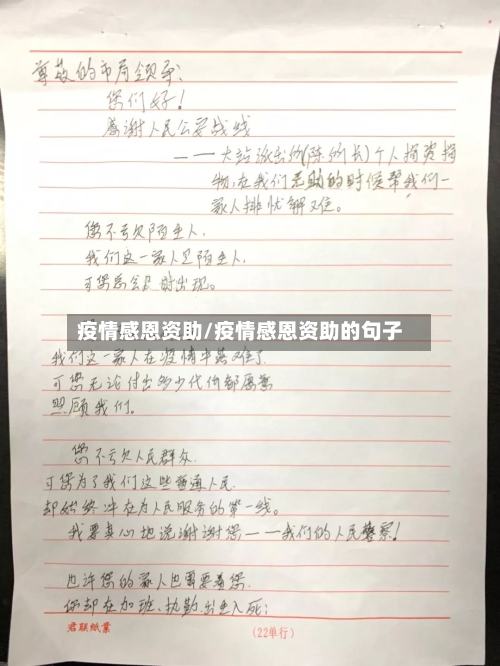 尊敬的市局领导:
您们好!
感谢人民公安战线
——大站派出所(陈所长)个人捐资捐
物,在我们无助的时候帮我们一
家人排忧解难。
您不亏欠陌生人,
我们这一家人是陌生人,
可您总会及时出现。
疫情感恩资助/疫情感恩资助的句子
我们这一家人在疫情中落难了
可您无论付出多少代价都愿意
照顾我们。
您不亏欠人民群众
可您为了我们这些普通人民
却始终冲在为人民服务的第一线。
我要真心地说谢谢您——我们的人民警察!
也许您的家人也需要着您
您却在加班、执勤、出生入死;
君联纸业
(22单行)